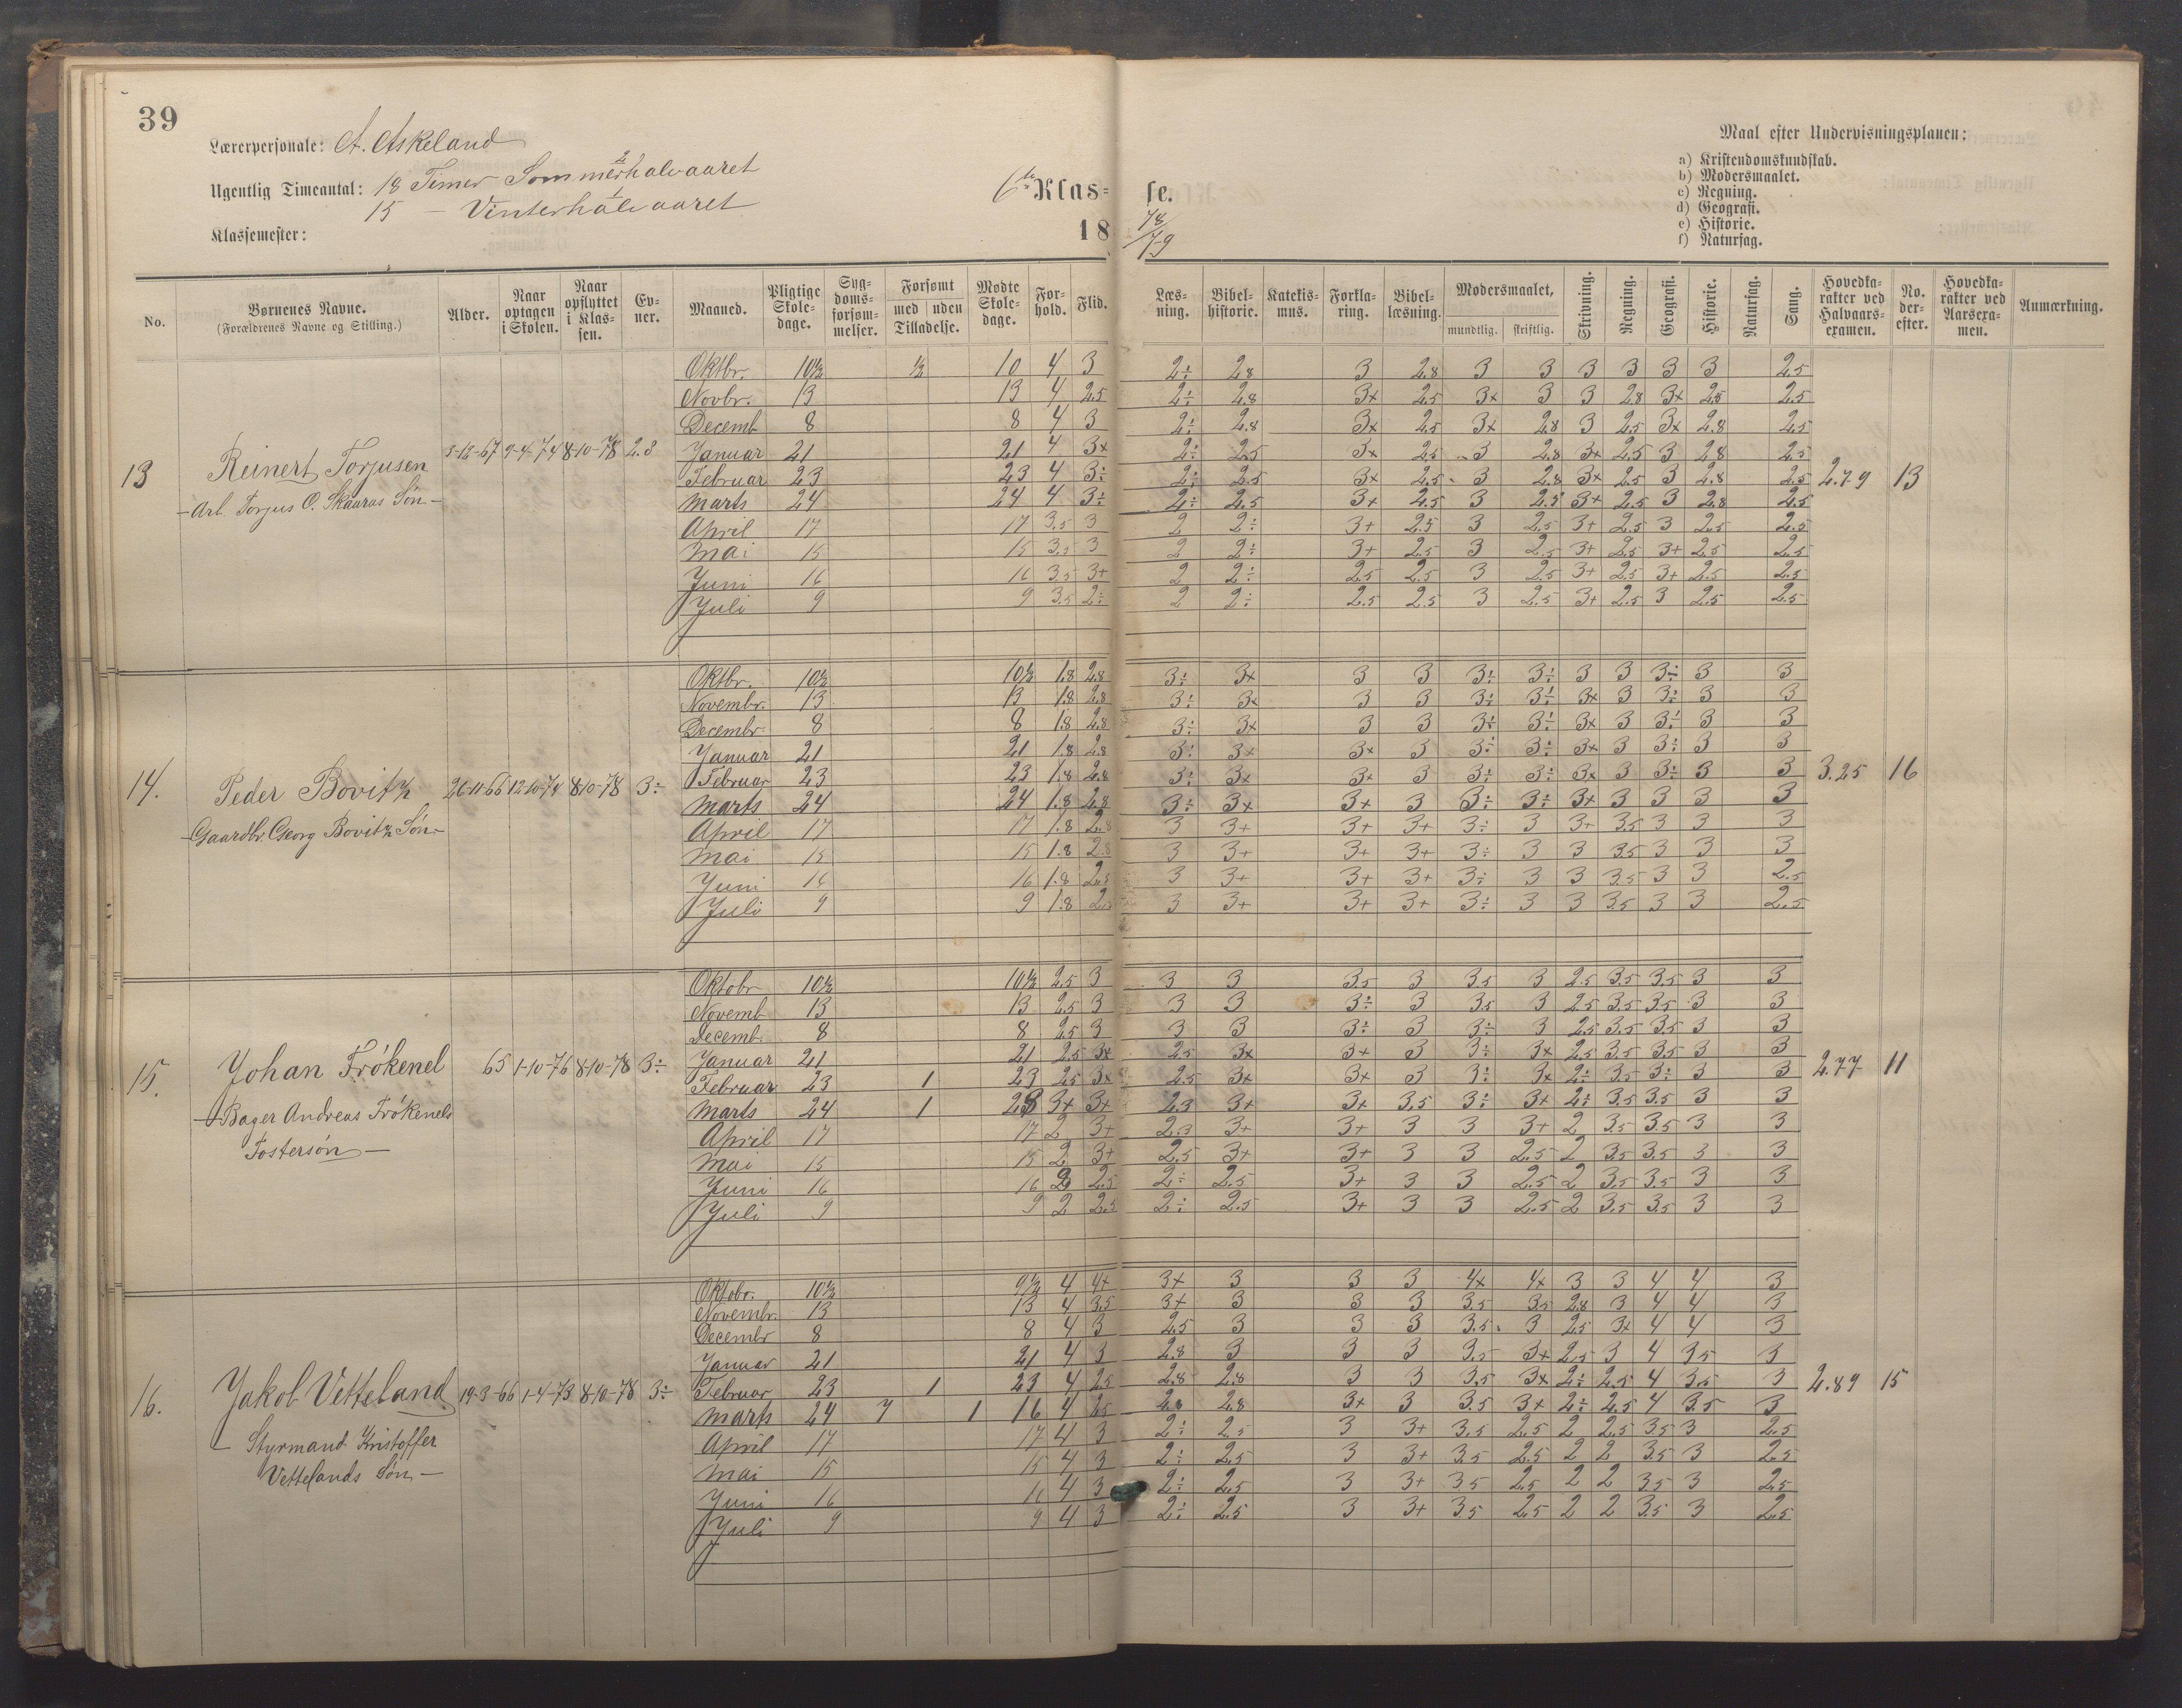 39
Lærerpersonale: A. Askeland
Ugentlig Timeantal: 18 Timer Sommerhalvaaret
15 — Vinterhalvaaret
Klassemester:
6te Klas= se.
18 78/79
Maal efter Undervisningsplanen:
a) Kristendomskundskab.
b) Modersmaalet.
c) Regning.
d) Geografi.
e) Historie.
f) Naturfag.
No. Børnenes Navne. (Forældrenes Navne og Stilling.) Alder. Naar optagen i Skolen. Naar opflyttet i Klassen. Evner. Maaned. Pligtige Skoledage. Sygdomsforsømmelser. Forsømt med uden Tilladelse. Mødte Skoledage. Forhold. Flid. Læsning. Bibelhistorie. Katekismus. Forklaring. Bibellæsning. Modersmaalet, mundtlig. skriftlig. Skrivning. Regning. Geografi. Historie. Naturfag. Sang. Hovedkarakter ved Halvaarsexamen. No. derefter. Hovedkarakter ved Aarsexamen. Anmærkning.
13 Reinert Torjusen 9-4-74 8-10-78 2.8 2.79 13
— Arb. Torjus O. Skaaras Søn —
Oktbr. 10½ ½ 10 4 3 2÷ 2.8 3 2.8 3 3 3 3 3 3 2.5
Novbr. 13 13 4 2.5 2÷ 2.8 3x 2.5 3x 3 3 2.8 3x 2.5 2.5
Decemb 8 8 4 3 2÷ 2.8 3x 2.5 3x 2.8 3 2.5 3x 2.8 2.5
Januar 21 21 4 3x 2÷ 2.5 3x 2.5 3 2.8 3x 2.5 3 2.8 2.5
Februar 23 23 4 3÷ 2÷ 2.5 3x 2.5 3 2.8 3x 2.5 3 2.8 2.5
Marts 24 24 4 3÷ 2÷ 2.5 3+ 2.5 3 2.5 3+ 2.5 3 2.8 2.5
April 17 17 3.5 3 2 2÷ 3+ 2.5 3 2.5 3+ 2.5 3 2.5 2.5
Mai 15 15 3.5 3 2 2÷ 3+ 2.5 3 2.5 3+ 2.5 3+ 2.5 2.5
Juni 16 16 3.5 3+ 2 2÷ 2.5 2.5 3 2.5 3+ 2.5 3+ 2.5 2.5
Juli 9 9 3.5 2÷ 2 2÷ 2.5 2.5 3 2.5 3+ 2.5 3 2.5 2.5
14. Peder Bovitz 26-11-66 12-10-74 8-10-78 3÷ 3.25 16
— Gaardbr. Georg Bovitz Søn —
Oktbr. 10½ 10½ 1.8 2.8 3÷ 3x 3 3 3÷ 3÷ 3 3 3÷ 3 3
Novembr. 13 13 1.8 2.8 3÷ 3x 3 3 3÷ 3÷ 3x 3 3÷ 3 3
Decembr 8 8 1.8 2.8 3÷ 3x 3 3 3÷ 3÷ 3x 3 3÷ 3 3
Januar 21 21 1.8 2.8 3÷ 3x 3x 3 3÷ 3÷ 3x 3 3÷ 3 3
Februar 23 23 1.8 2.8 3÷ 3x 3x 3 3÷ 3÷ 3x 3 3÷ 3 3
Marts 24 24 1.8 2.8 3÷ 3x 3+ 3 3÷ 3÷ 3+ 3 3 3 3
April 17 17 1.8 2.8 3 3+ 3+ 3+ 3÷ 3 3+ 3.5 3 3 3
Mai 15 15 1.8 2.8 3 3+ 3+ 3+ 3÷ 3 3 3.5 3 3 3
Juni 16 16 1.8 2.5 3 3+ 3+ 3+ 3÷ 3 3 3.5 3 3 2.5
Juli 9 9 1.8 3 3+ 3+ 3+ 3÷ 3 3 3.5 3 3 2.5
15. Johan Frøkenel 65 1-10-76 8-10-78 3÷ 2.77 11
— Bager Andreas Frøkenels
Fostersøn —
Oktobr 10½ 10½ 2.5 3 3 3 3.5 3 3.5 3 2.5 3.5 3.5 3 3
Novemb 13 13 2.5 3 3 3 3÷ 3 3.5 3 2.5 3.5 3.5 3 3
Decemb. 8 8 2.5 3 3 3 3÷ 3 3÷ 3 2.5 3.5 3.5 3 3
Januar 21 21 2.5 3x 2.5 3x 3+ 3 3÷ 3x 2.5 3.5 3.5 3 3
Februar 23 1 23 2.5 3x 2.5 3x 3x 3 3÷ 3x 2÷ 3.5 3÷ 3 3
Marts 24 1 3+ 3+ 2.5 3+ 3+ 3.5 3÷ 3+ 2÷ 3.5 3.5 3 3
April 17 17 2 3+ 2.5 3+ 3+ 3 3 3+ 2 3.5 3.5 3 3
Mai 15 15 2 3+ 2.5 3+ 3+ 3 3 2.5 2 3.5 3.5 3 3
Juni 16 16 2 2.5 2÷ 2.5 3+ 3 3 2.5 2 3.5 3.5 3 3
Juli 9 9 2 2.5 2÷ 2.5 3+ 3 3 2.5 2 3.5 3.5 3 3
16. Jakob Vetteland 19-3-66 1-4-73 8-10-78 3÷ 2.89 15
— Styrmand Kristoffer
Vettelands Søn —
Oktobr. 10½ 9½ 4 4+ 3+ 3 3 3 4x 4x 3 3 4 4 3
Novembr. 13 13 4 3.5 3+ 3 3 3 3.5 3.5 2.8 3 4 4 3
Decembr 8 8 4 3 2.5 3 3 3 3.5 3 2.5 3x 4 4 3
Januar 21 21 4 3 2.8 3 3 3 3.5 3x 2.5 3 4 3.5 3
Februar 23 1 23 4 2.5 2.8 2.8 3 3 3.5 3x 2÷ 2.5 4 3.5 3
Marts 24 7 1 16 4 2.5 2.8 2.8 3+ 3 3.5 3+ 2÷ 2.5 4 3.5 3
April 17 17 4 3 2÷ 2.5 3 3+ 3.5 2.5 2 2.5 3.5 3 2.5
Mai 15 15 4 3 2÷ 2.5 3 3+ 3.5 2.5 2 2 3.5 3 2.5
Juni 16 16 4 3 2÷ 2.5 3 3+ 3.5 2.5 2 2 3.5 3 2.5
Juli 9 9 4 3 2÷ 2.5 3 3+ 3.5 2.5 2 2 3.5 3 2.5